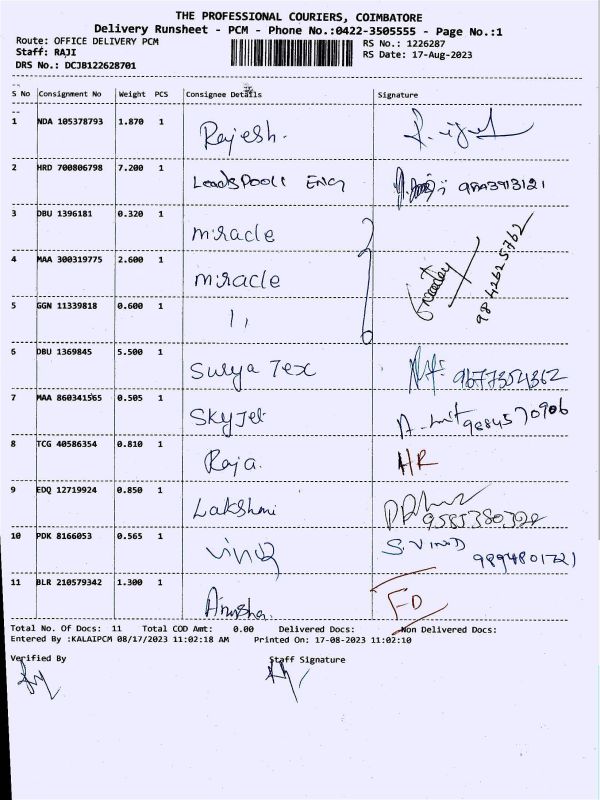 THE PROFESSIONAL COURIERS, COIMBATORE
Delivery Runsheet - PCM - Phone No.:0422-3505555 - Page No.:1
Route: OFFICE DELIVERY PCM RS No.: 1226287
Staff: RAJI RS Date: 17-Aug-2023
DRS No.: DCJB122628701
S No Consignment No Weight PCS Consignee Details Signature
1 NDA 105378793 1.870 1 Rajesh.
2 HRD 700806798 7.200 1 9843913121
3 DBU 1396181 0.320 1 miracle
4 MAA 300319775 2.600 1 miracle 9842625762
5 GGN 11339818 0.600 1 11
6 DBU 1369845 5.500 1 Surya Tex 9677354362
7 MAA 860341565 0.505 1 SKyJet 9884570906
8 TCG 40586354 0.810 1 Raja. HR
9 EDQ 12719924 0.850 1 Lakshmi
10 PDK 8166053 0.565 1 S.VINOD 9894801721
11 BLR 210579342 1.300 1 Anusha. FD
Total No. Of Docs: 11 Total COD Amt: 0.00 Delivered Docs: Non Delivered Docs:
Entered By :KALAIPCM 08/17/2023 11:02:18 AM Printed On: 17-08-2023 11:02:10
Verified By Staff Signature